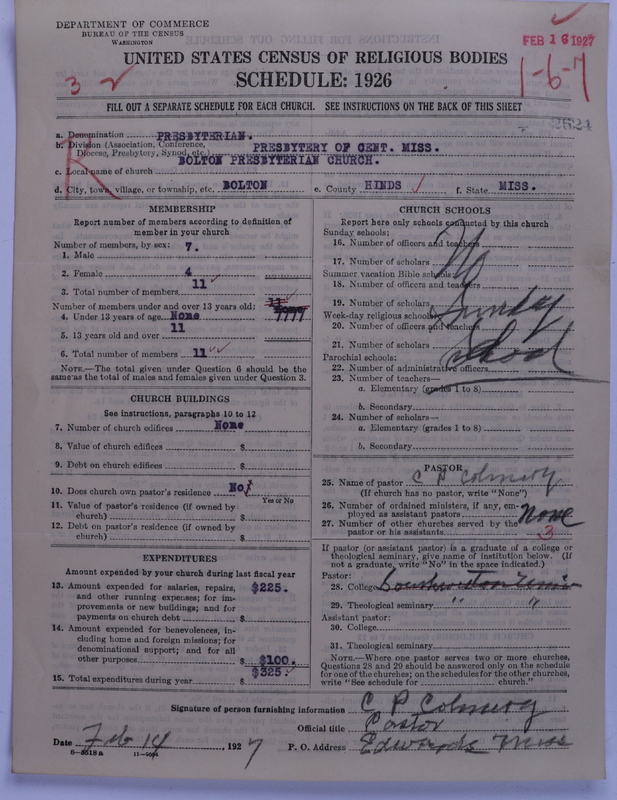 DEPARTMENT OF COMMERCE
BUREAU OF THE CENSUS
WASHINGTON
FEB 16 1927
UNITED STATES CENSUS OF RELIGIOUS BODIES
1-6-7
3 2
SCHEDULE: 1926
FILL OUT A SEPARATE SCHEDULE FOR EACH CHURCH. SEE INSTRUCTIONS ON THE BACK OF THIS SHEET
2624
R
a. Denomination PRESBYTERIAN.
b. Division (Association, Conference, Diocese, Presbytery, Synod, etc.) PRESBYTERY OF CENT. MISS.
c. Local name of church BOLTON PRESBYTERIAN CHURCH.
d. City, town, village, or township, etc. BOLTON e. County HINDS f. State MISS.
MEMBERSHIP
Report number of members according to definition of
member in your church
Number of members, by sex:
1. Male 7.
2. Female 4
3. Total number of members 11
Number of members under and over 13 years old:
4. Under 13 years of age None
5. 13 years old and over 11
6. Total number of members 11
NOTE.—The total given under Question 6 should be
same as the total of males and females given under Question 3.
CHURCH BUILDINGS
See instructions, paragraphs 10 to 12
7. Number of church edifices None
8. Value of church edifices $
9. Debt on church edifices $
10. Does church own pastor's residence No
Yes or No
11. Value of pastor's residence (if owned by
church) $
12. Debt on pastor's residence (if owned by
church) $
EXPENDITURES
Amount expended by your church during last fiscal year
13. Amount expended for salaries, repairs,
and other running expenses; for im-
provements or new buildings; and for
payments on church debt $ $225.
14. Amount expended for benevolences, in-
cluding home and foreign missions; for
denominational support; and for all
other purposes $ $100.
15. Total expenditures during year $ $325.
CHURCH SCHOOLS
Report here only schools conducted by this church
Sunday schools:
16. Number of officers and teachers
17. Number of scholars
Summer vacation Bible schools:
18. Number of officers and teachers
19. Number of scholars
Week-day religious schools:
20. Number of officers and teachers
21. Number of scholars
Parochial schools:
22. Number of administrative officers
23. Number of teachers—
a. Elementary (grades 1 to 8)
b. Secondary
24. Number of scholars—
a. Elementary (grades 1 to 8)
b. Secondary
No
Sunday
School
PASTOR
25. Name of pastor C P Colmery
(If church has no pastor, write "None")
26. Number of ordained ministers, if any, em-
ployed as assistant pastors None
27. Number of other churches served by the
pastor or his assistants 3
If pastor (or assistant pastor) is a graduate of a college or
theological seminary, give name of institution below. (If
not a graduate, write "No" in the space indicated.)
Pastor:
28. College
29. Theological seminary " "
Assistant pastor:
30. College
31. Theological seminary
NOTE.—Where one pastor serves two or more churches,
Questions 28 and 29 should be answered only on the schedule
for one of the churches; on the schedules for the other churches,
write "See schedule for church."
Signature of person furnishing information C P Colmery
Official title Pastor
Date Feb 14, 1927 P. O. Address Edwards Miss
8-5518a 11-9094